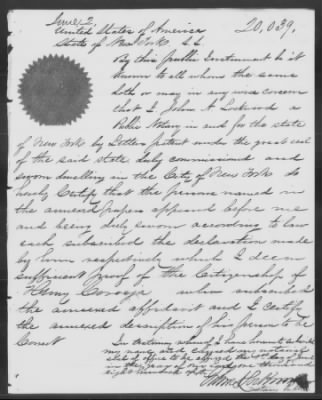 June 2.
20,039.
United States of America
State of New York S.S.
By this public Instrument be it
known to all whom the same
doth or may in any wise concern
that I John A Lockwood a
Public Notary in and for the state
of New York by Letters patent under the great seal
of the said state duly commissioned and
sworn dwelling in the City of New York do
hereby Certify that the persons named in
the annexed papers appeared before me
and being duly sworn according to law
each subscribed the declaration made
by him respectively which I deem
sufficient proof of the Citizenship of
Henry who subscribed
the annexed affidavit and I certify
the annexed description of his person to be
Correct
In testimony whereof I have hereunto subscribed
my name and my notarial
seal of office to be affixed the day of June
in the year of our Lord one thousand
eight hundred